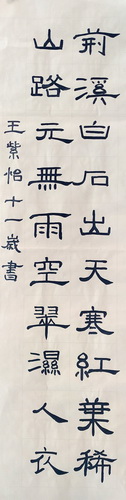 荊溪白石出天寒紅葉稀
山路元無雨空翠濕人衣
王紫怡十一歲書